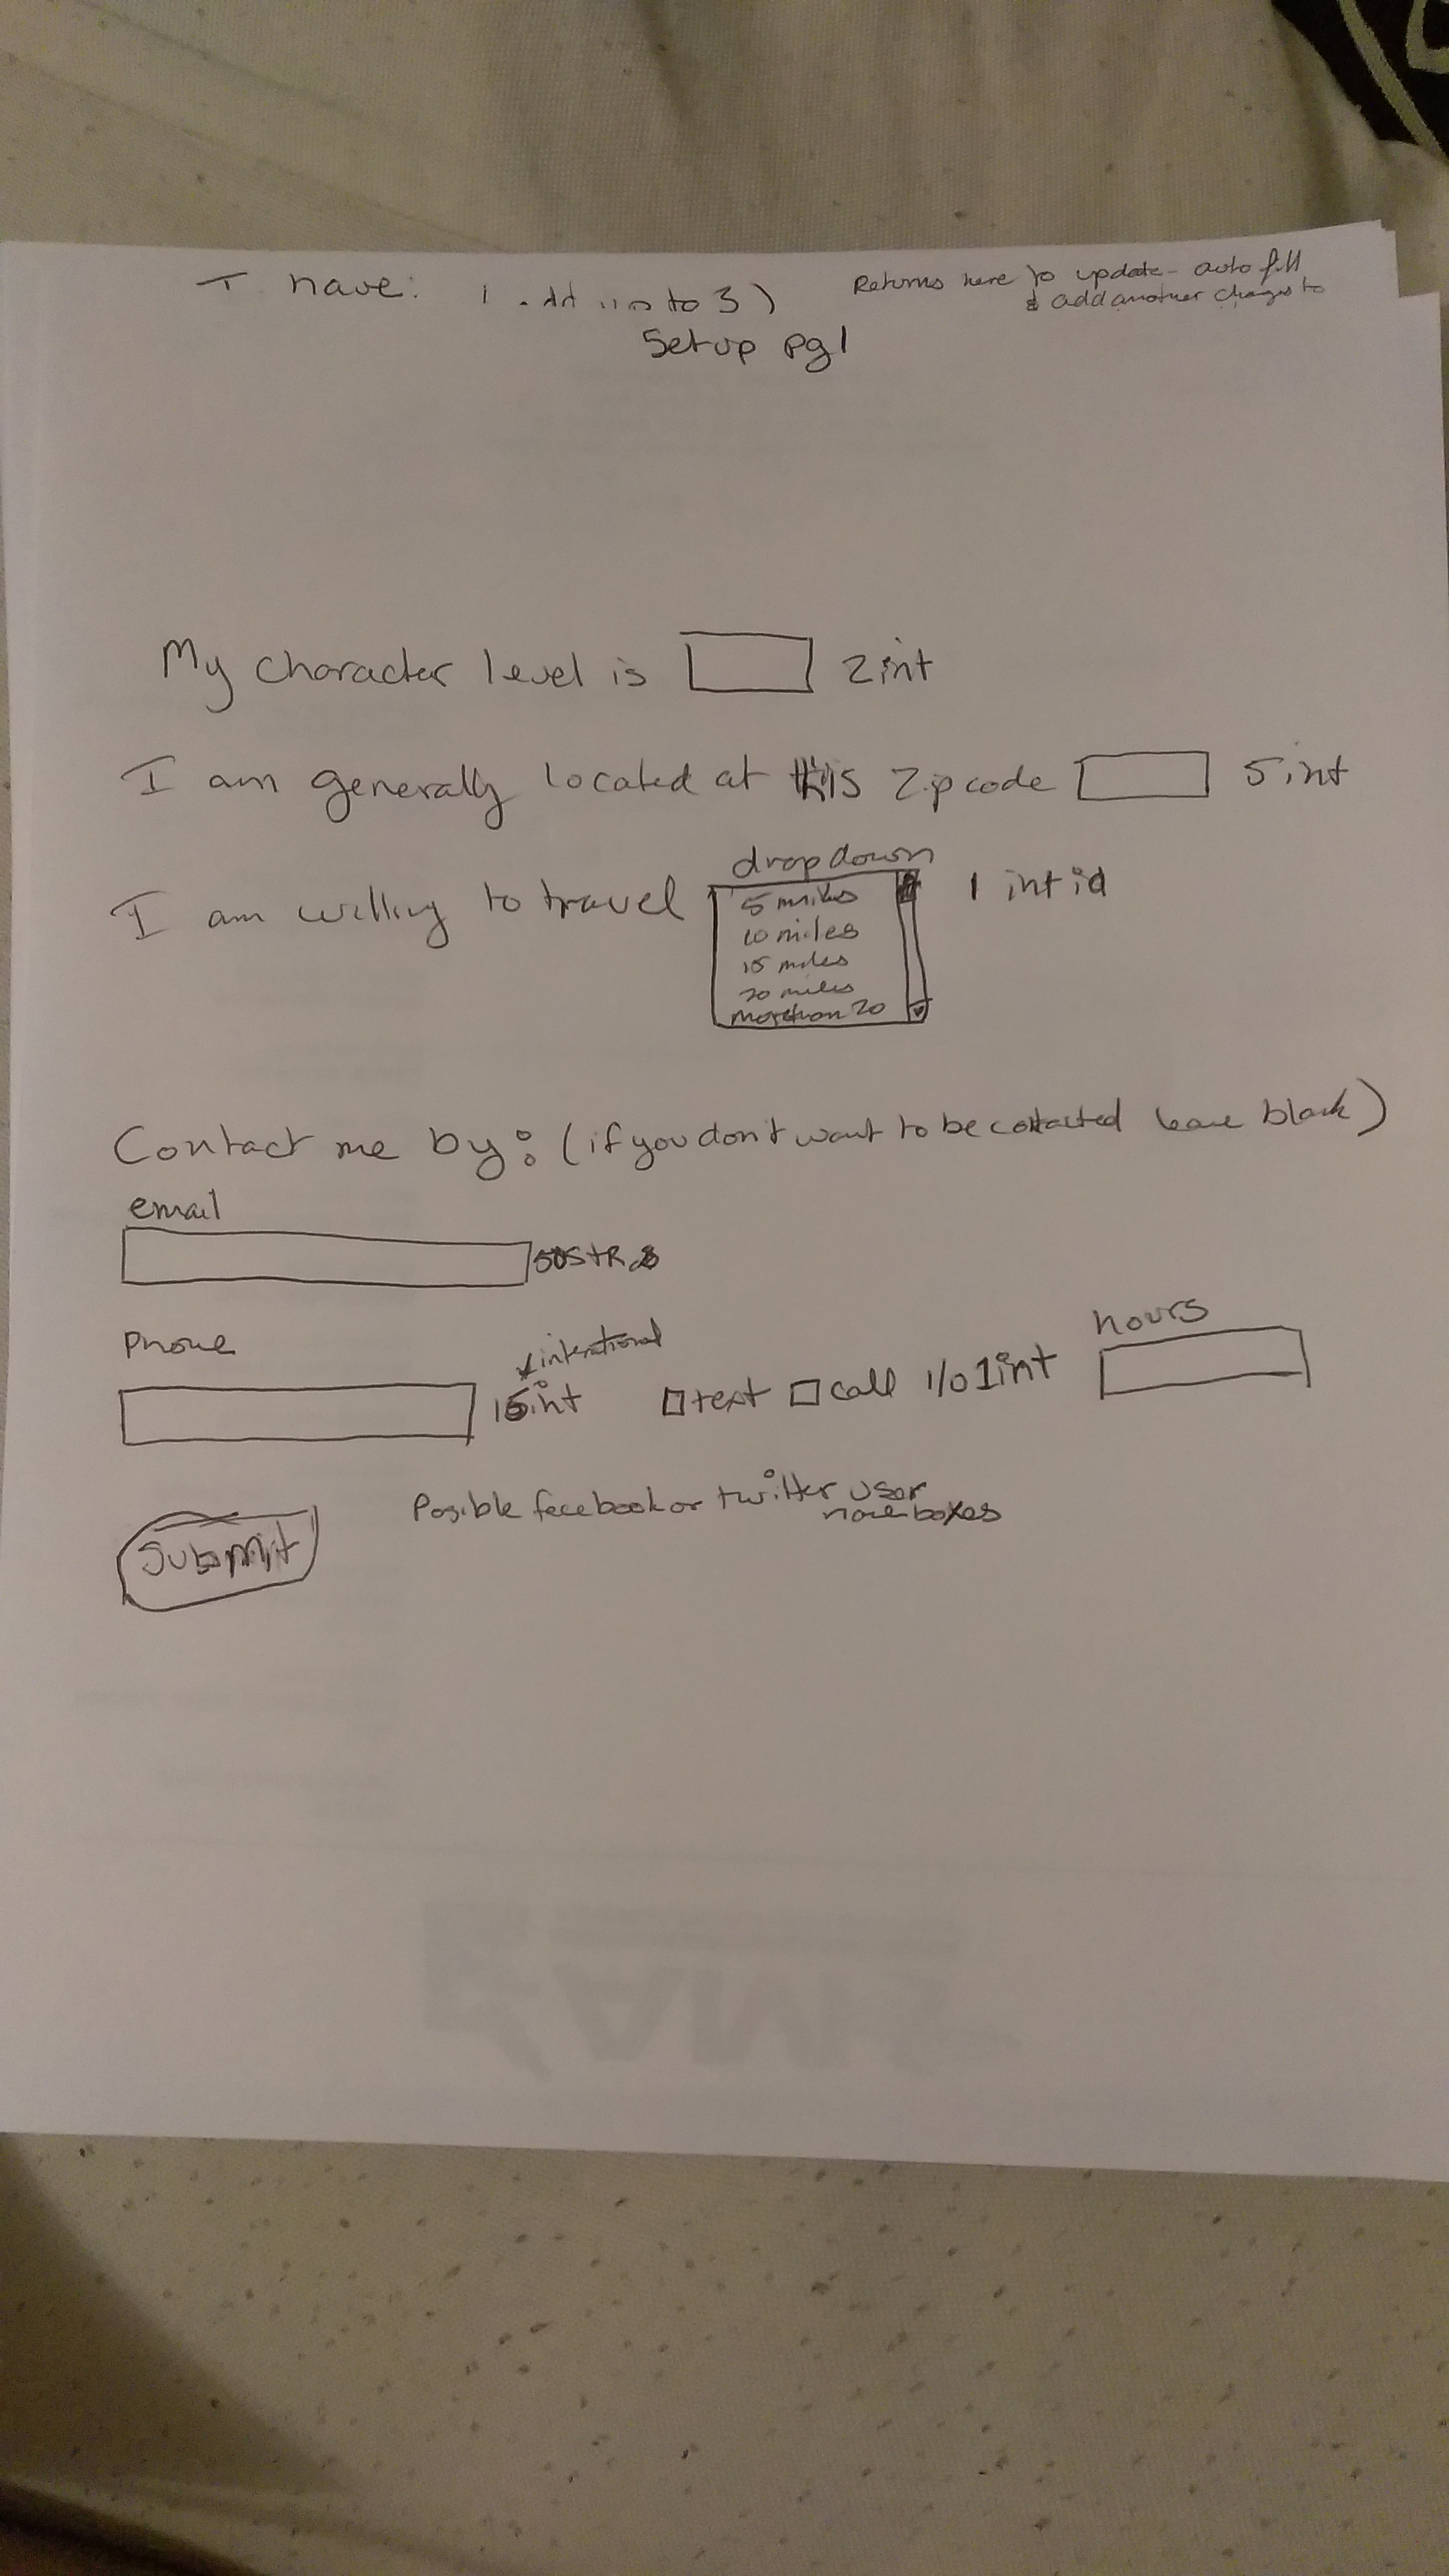 I have: to 3)
Returns here to update - auto fill
& add another changes to
Setup pg1
My character level is 2 int
I am generally located at this Zip code 5 int
drop down
I am willing to travel 1 int id
5 miles
10 miles
15 miles
20 miles
more than 20
Contact me by: (if you don't want to be contacted leave blank)
email
50 STR
Phone
international
hours
15 int text call 1/0 1 int
Posible facebook or twitter user
name boxes
Submit